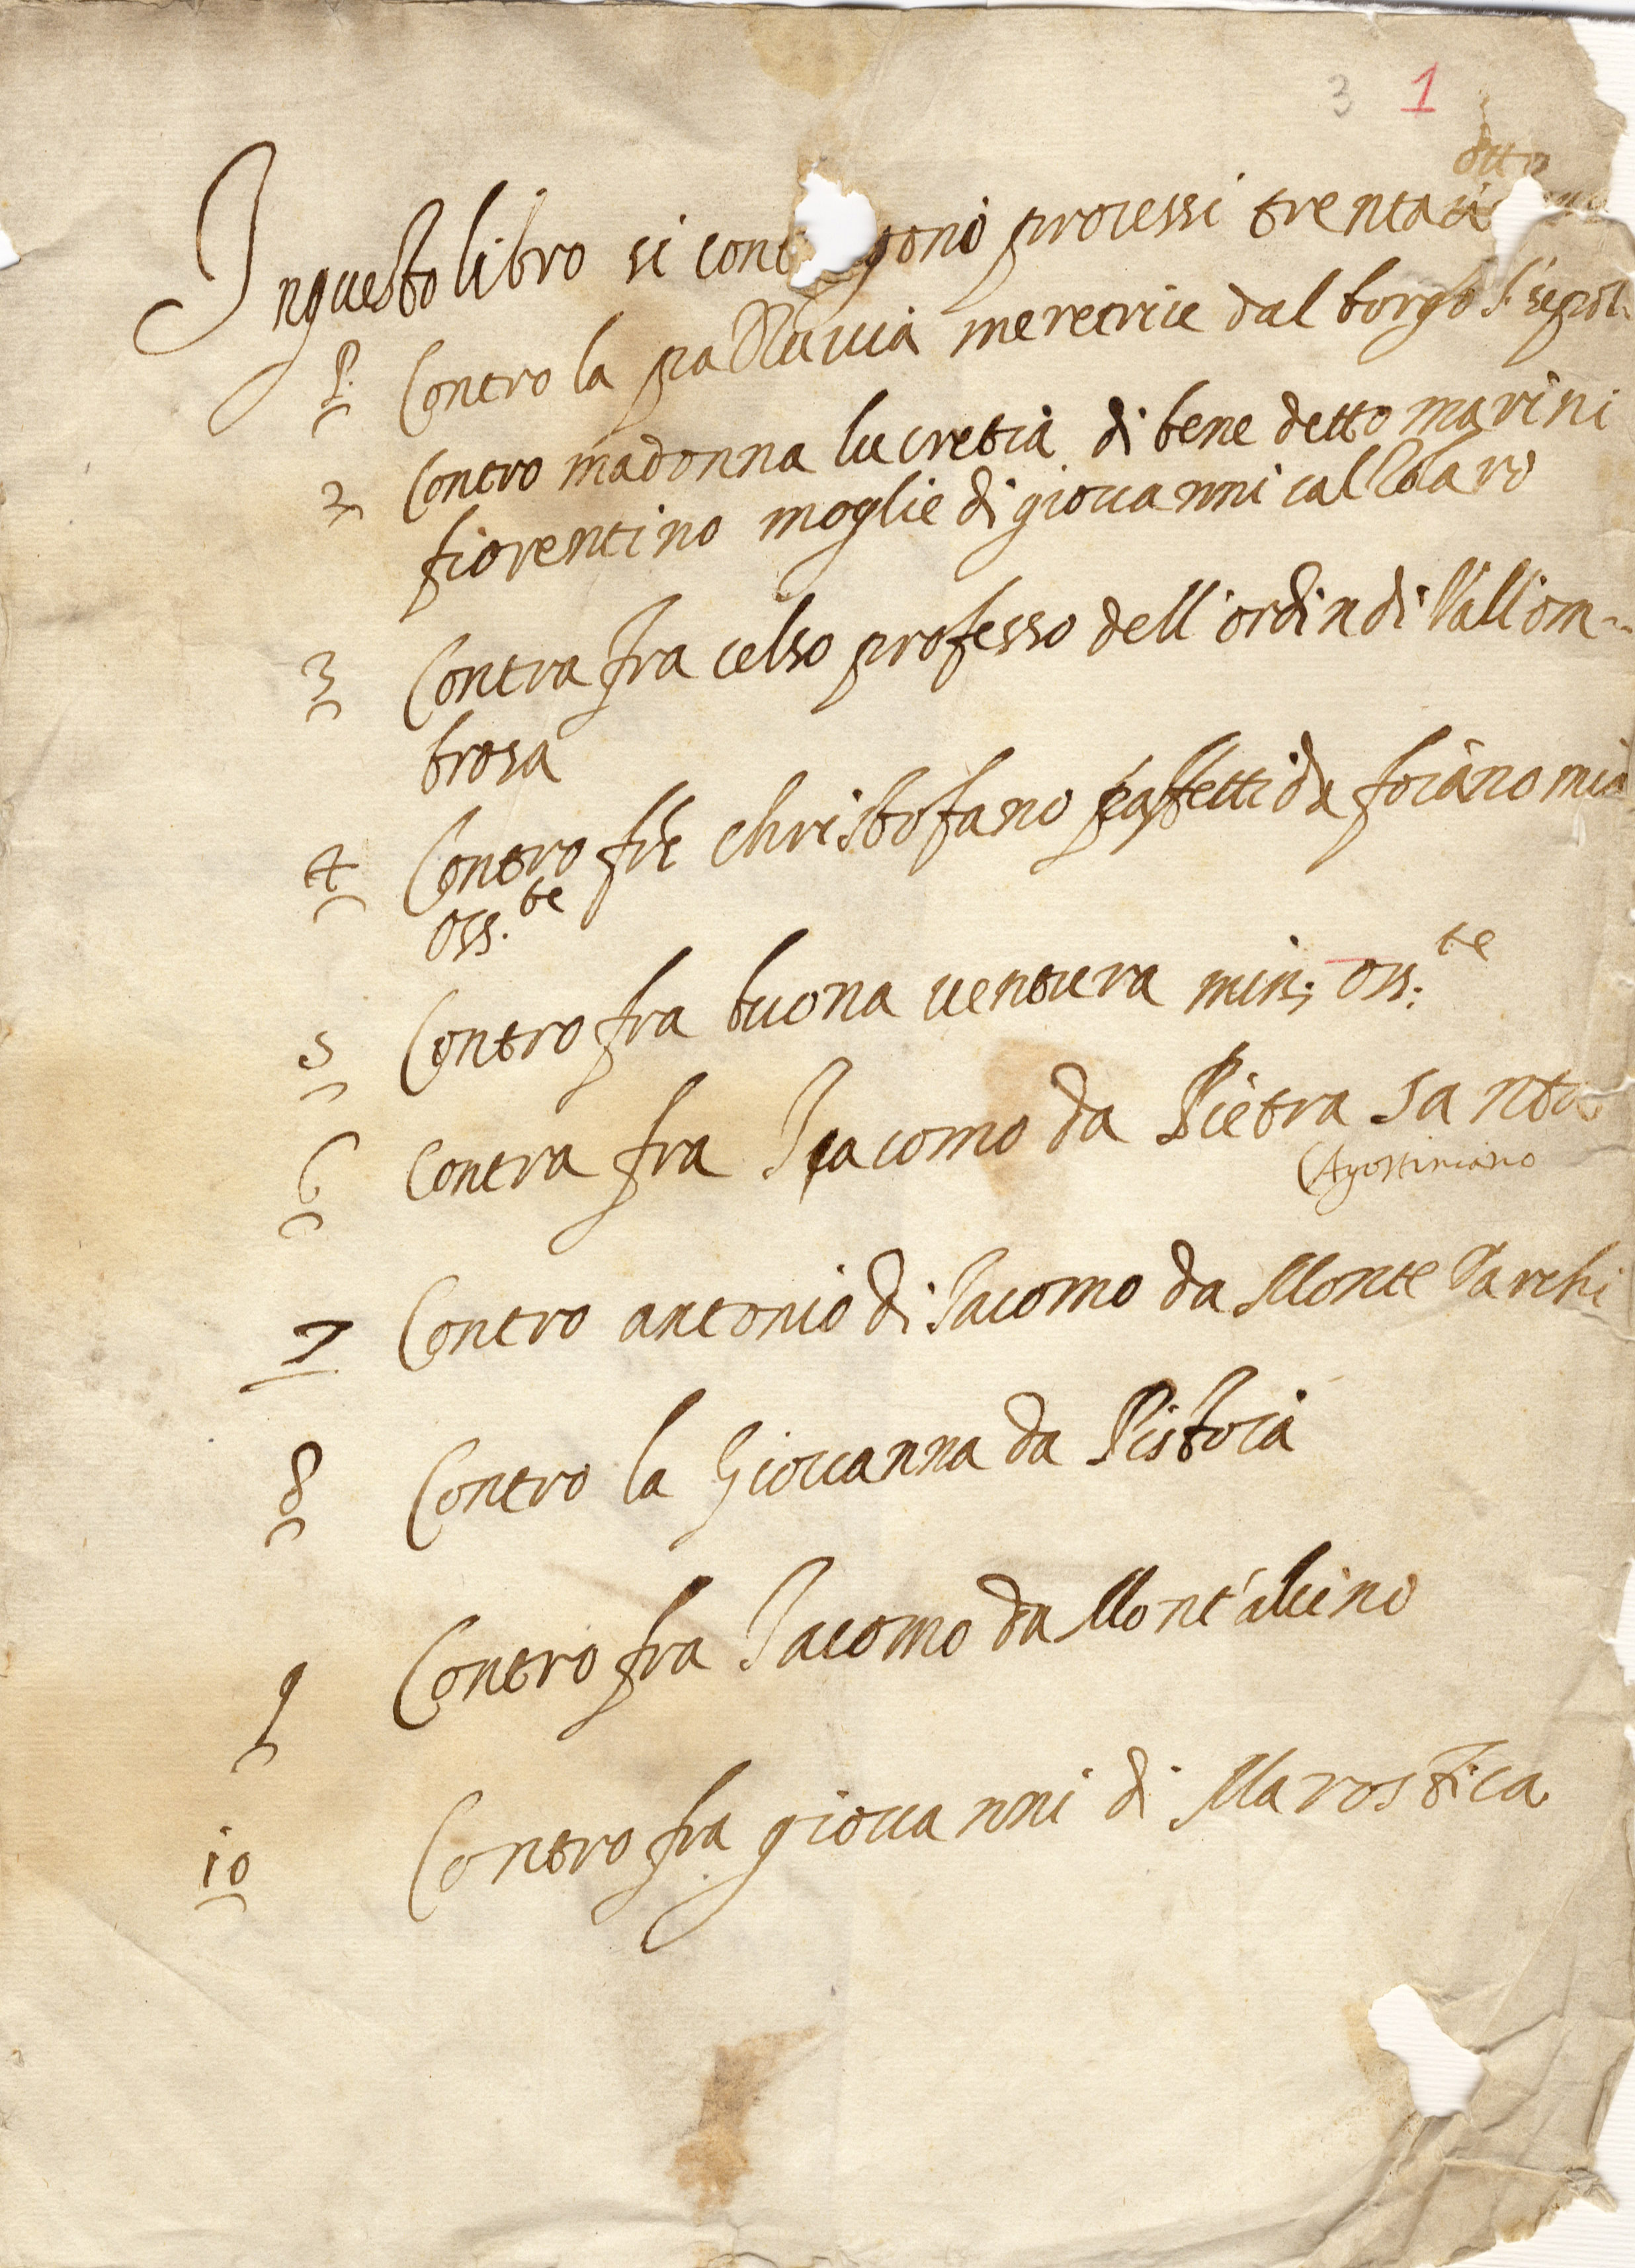 3 1
otto
In questo libro si cont gono processi trenta
1. Contro la meretrice dal borgo S. sepol.
2 Contro madonna lucretia di bene detto marini
fiorentino moglie di giovanni calzolaro
3 Contra fra celso professo dell'ordin di Vallom-
brosa
4 Contro fra christofano da foiano min
oss.te
5 Contro fra buona ventura min; oss.te
6 Contra fra Jacomo da Pietra Santa
Agostiniano
7 Contro antonio di Jacomo da Monte Varchi
8 Contro la Giovanna da Pistoia
9 Contro fra Jacomo da Mont'alcino
10 Contro fra giovanni di Marostica